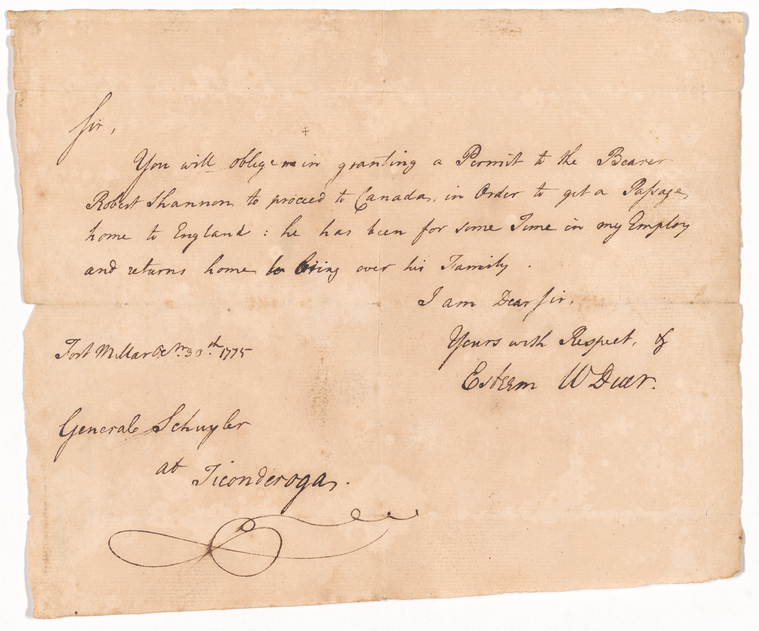 Sir,
You will oblige me in granting a Permit to the Bearer
Robert Shannon to proceed to Canada, in Order to get a Passage
home to England: he has been for some Time in my Employ
and returns home to bring over his Family.
I am Dear Sir,
Yours with Respect, &
Esteem W Duer.
Fort Millar Octr. 30th 1775
General Schuyler
at Ticonderoga.